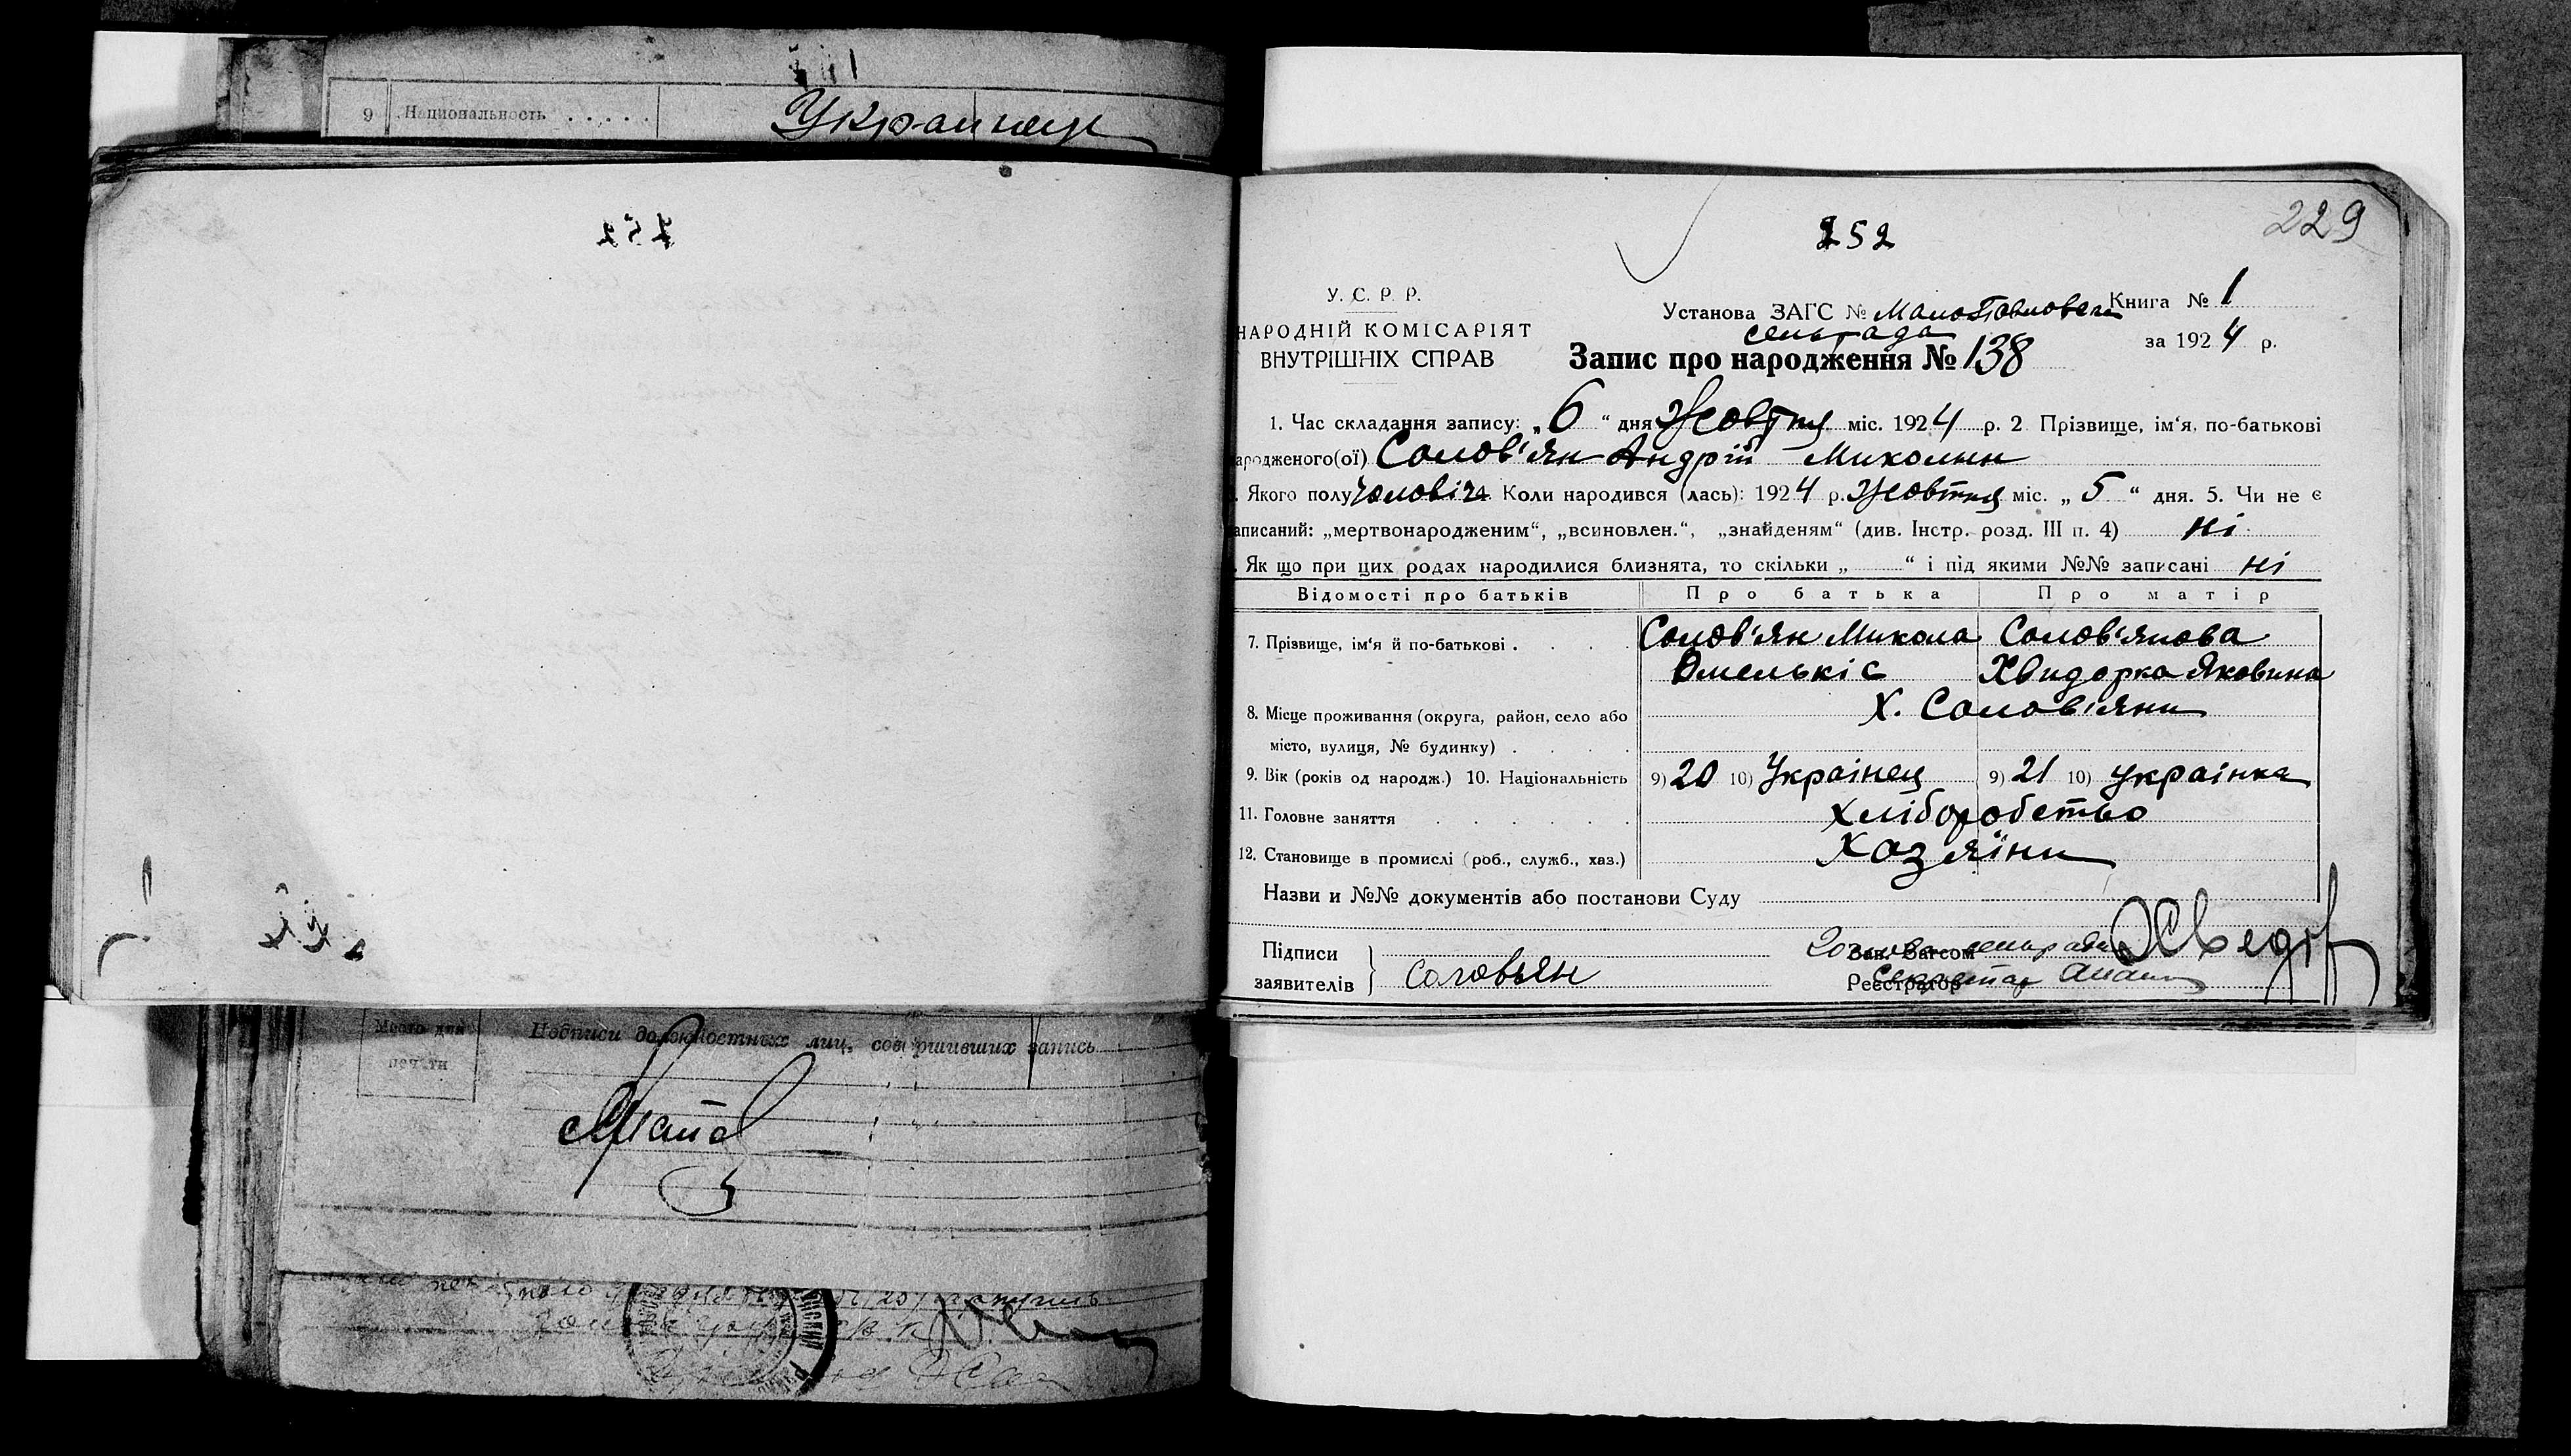 9 Национальность . . . . . Украинец
252
229
У. С. Р. Р.
НАРОДНІЙ КОМІСАРІЯТ
ВНУТРІШНІХ СПРАВ
Установа ЗАГС № МалоПавловська
сельрада
Книга № 1
за 1924 р.
Запис про народження № 138
1. Час складання запису: „6“ дня Жовтня міс. 1924 р. 2 Прізвище, ім‘я, по-батькові
ародженого(ої) Солов'ян Андрій Миколин
. Якого полу чоловіч 4. Коли народився (лась): 1924 р. Жовтня міс. „5“ дня. 5. Чи не є
аписаний: „мертвонародженим“, „всиновлен.“, „знайденям“ (див. Інстр. розд. III п. 4) ні
. Як що при цих родах народилися близнята, то скільки „ “ і під якими №№ записані ні
Відомості про батьків Про батька Про матір
7. Прізвище, ім‘я й по-батькові . . . . Солов'ян Микола Солов'янова
Омелькіс Хвидорка Яковина
8. Місце проживання (округа, район, село або Х. Солов'яни
місто, вулиця, № будинку) . . . .
9. Вік (років од народж.) 10. Національність 9) 20 10) Українец 9) 21 10) українка
11. Головне заняття . . . . . . Хліборобство
12. Становище в промислі (роб., служб., хаз.) Хазяїни
Назви и №№ документів або постанови Суду
Підписи
заявителів Соловьян
Зав. Загсом Голова сельради
Реєстратор Секретар
Место для
печати
Подписи должностных лиц, совершивших запись